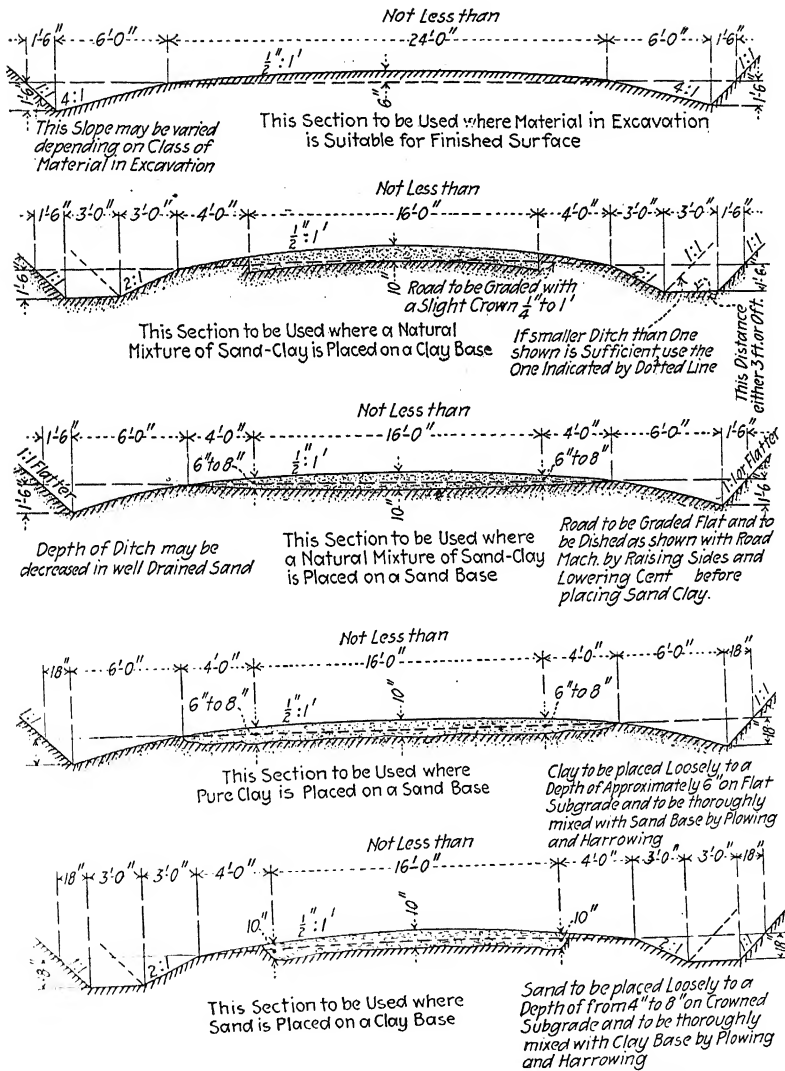 Not Less than
1'-6" 6'-0" 24'-0" 6'-0" 1'-6"
½":1'
1:1 4:1 6" 4:1 1:1
1'-6" 1'-6"
This Slope may be varied
depending on Class of
Material in Excavation
This Section to be Used where Material in Excavation
is Suitable for Finished Surface
Not Less than
1'-6" 3'-0" 3'-0" 4'-0" 16'-0" 4'-0" 3'-0" 3'-0" 1'-6"
½":1'
1:1 1:1
1'-6" 1:1 2:1 10" 2:1 1'-6"
Road to be Graded with
a Slight Crown ¼" to 1'
This Section to be Used where a Natural
Mixture of Sand-Clay is Placed on a Clay Base
If smaller Ditch than One
shown is Sufficient, use the
One Indicated by Dotted Line
This Distance
either 3 ft. or 0 ft.
Not Less than
1'-6" 6'-0" 4'-0" 16'-0" 4'-0" 6'-0" 1'-6"
6" to 8" ½":1' 6" to 8"
1:1 Flatter 1:1 or Flatter
1'-6" 10" 1'-6"
Depth of Ditch may be
decreased in well Drained Sand
This Section to be Used where
a Natural Mixture of Sand-Clay
is Placed on a Sand Base
Road to be Graded Flat and to
be Dished as shown with Road
Mach. by Raising Sides and
Lowering Cent before
placing Sand Clay.
Not Less than
18" 6'-0" 4'-0" 16'-0" 4'-0" 6'-0" 18"
6" to 8" ½":1' 10" 6" to 8"
1:1 1:1
18"
This Section to be Used where
Pure Clay is Placed on a Sand Base
Clay to be placed Loosely to a
Depth of Approximately 6" on Flat
Subgrade and to be thoroughly
mixed with Sand Base by Plowing
and Harrowing
Not Less than
18" 3'-0" 3'-0" 4'-0" 16'-0" 4'-0" 3'-0" 3'-0" 18"
10" ½":1' 10" 10"
18" 1:1 2:1 2:1 1:1 18"
This Section to be Used where
Sand is Placed on a Clay Base
Sand to be placed Loosely to a
Depth of from 4" to 8" on Crowned
Subgrade and to be thoroughly
mixed with Clay Base by Plowing
and Harrowing